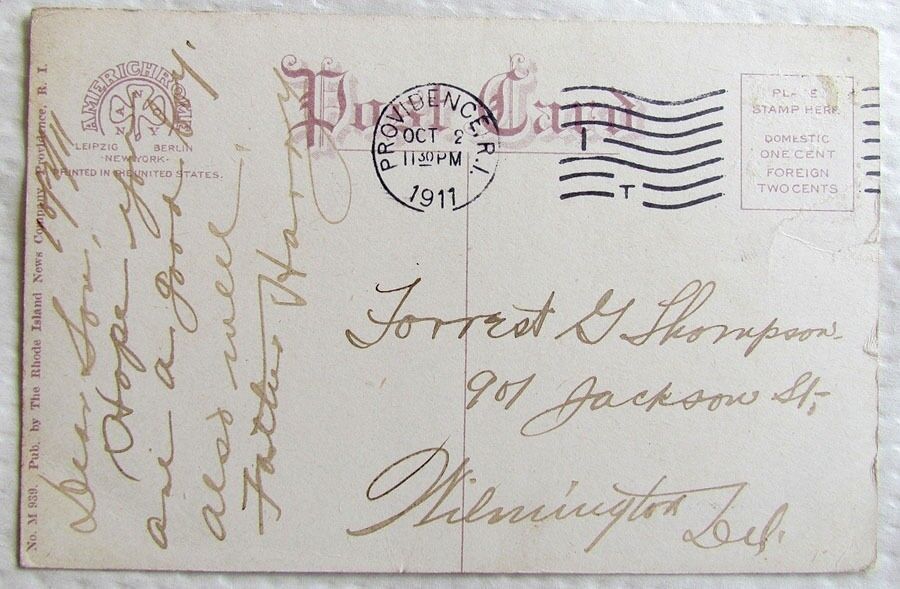 No. M 939. Pub. by The Rhode Island News Company, Providence, R. I.
AMERICHROME
A N C
N Y
LEIPZIG BERLIN
-NEW-YORK-
PRINTED IN THE UNITED STATES.
Post Card
PROVIDENCE, R.I.
OCT 2
11 30 PM
1911
I
T
PLACE
STAMP HERE
DOMESTIC
ONE CENT
FOREIGN
TWO CENTS
Dear Son,
Hope you
are a good boy.
also well
Father Harry
Forrest G Thompson
901 Jackson St,
Wilmington
Del.